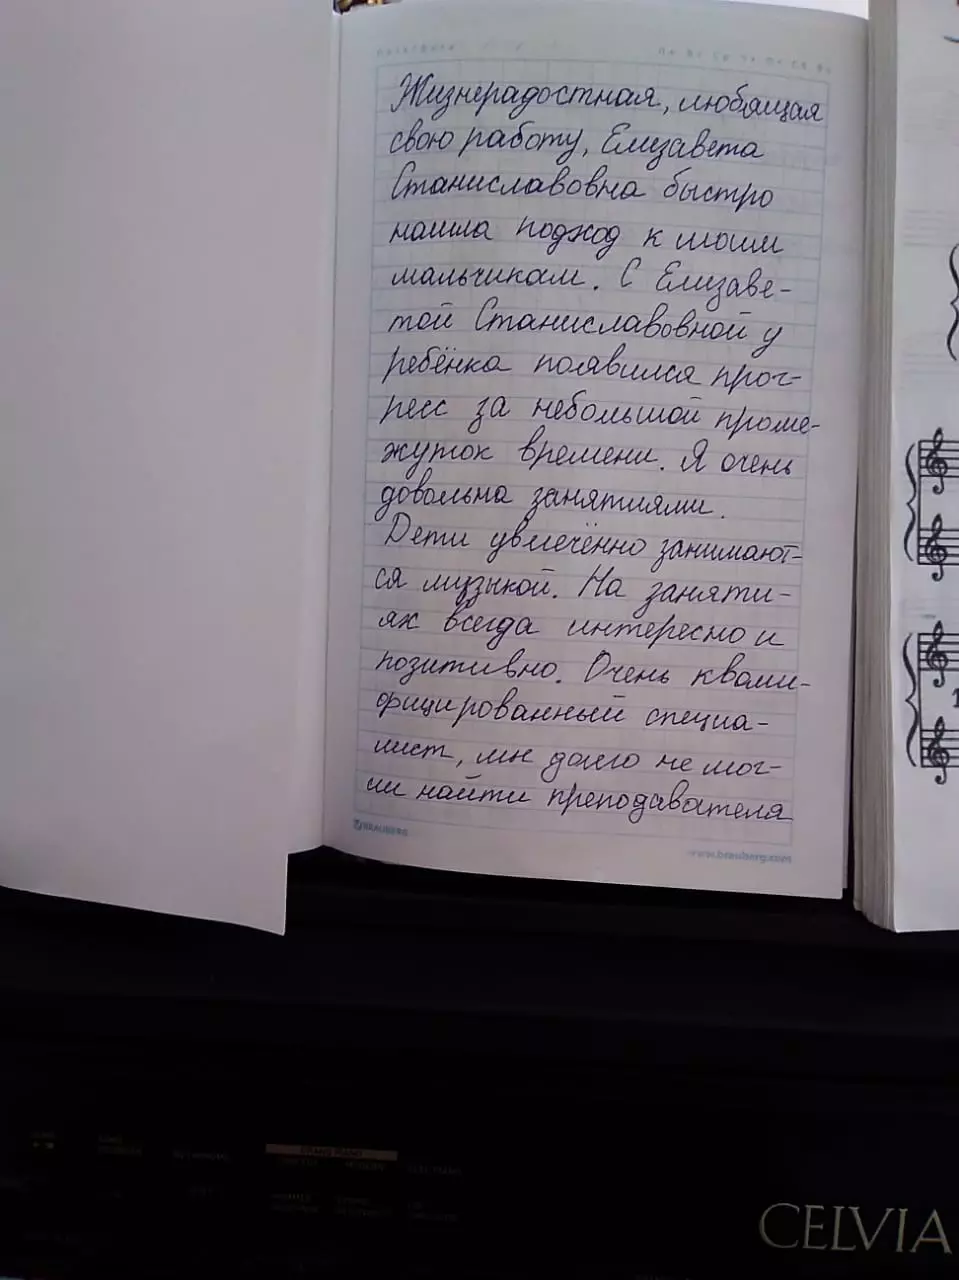 Жизнерадостная, любящая
свою работу, Елизавета
Станиславовна быстро
нашла подход к моим
мальчикам. С Елизаве-
той Станиславовной у
ребёнка появился прог-
ресс за небольшой проме-
жуток времени. Я очень
довольна занятиями.
Дети увлечённо занимают-
ся музыкой. На заняти-
ях всегда интересно и
позитивно. Очень квали-
фицированный специа-
лист, мы долго не мог-
ли найти преподавателя
BRAUBERG
www.brauberg.com
GRAND PIANO
CELVIA